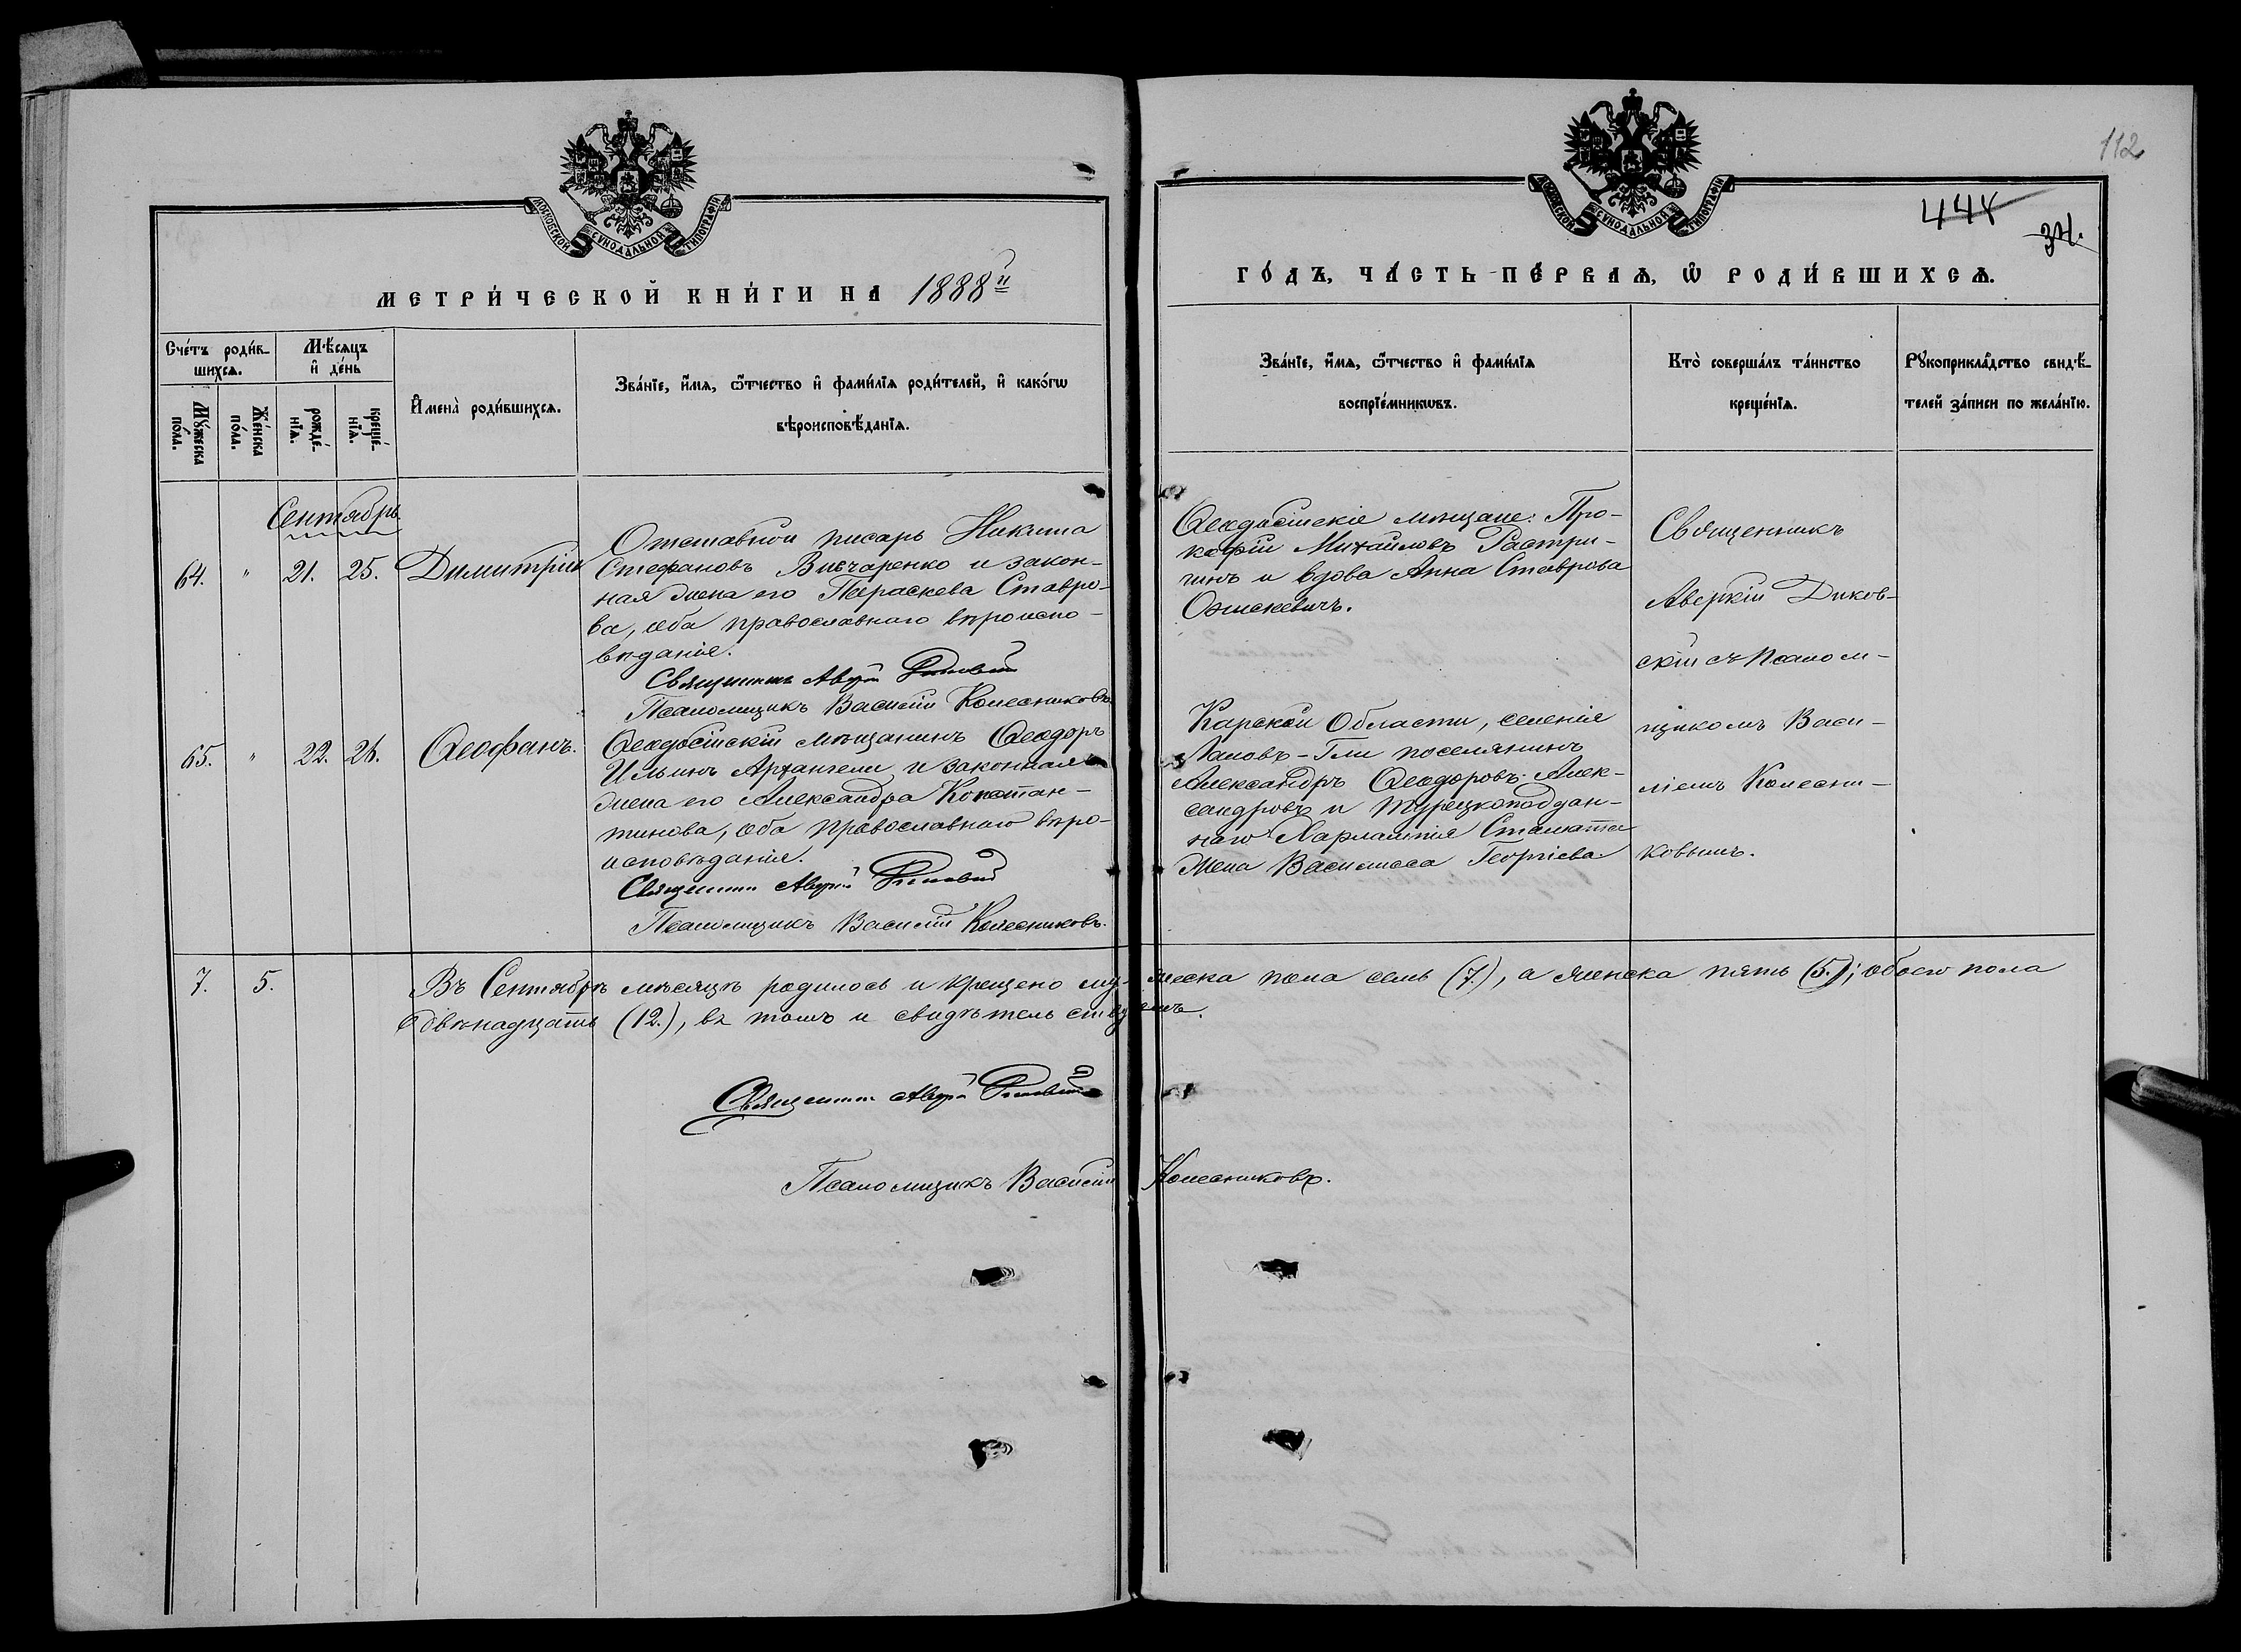 112
444
34.
МОСКОВСКОЙ СѴНОДАЛЬНОЙ ТИПОГРАФІИ
МОСКОВСКОЙ СѴНОДАЛЬНОЙ ТИПОГРАФІИ
МЕТРИ́ЧЕСКОЙ КНИ́ГИ НА 1888й
ГО́ДЪ, ЧА́СТЬ ПЕ́РВАѦ, Ѡ҆ РОДИ́ВШИХСѦ.
Сче́тъ роди́в-
шихсѧ.
Мꙋ́жеска по́ла.
Же́нска по́ла.
Мѣ́сѧцъ
и҆ де́нь
рожде́-
нїѧ.
креще́-
нїѧ.
И҆мена̀ роди́вшихсѧ.
Зва́нїе, и҆́мѧ, ѻ҆́тчество и҆ фами́лїѧ роди́телей, и҆ како́гѡ
вѣроисповѣ́данїѧ.
Зва́нїе, и҆́мѧ, ѻ҆́тчество и҆ фами́лїѧ
воспрїе́мникѡвъ.
Кто̀ соверша́лъ та́инство
креще́нїѧ.
Рꙋкоприкла́дство свидѣ́-
телей за́писи по жела́нїю.
Сентябрь
64. " 21. 25. Димитрій
Отставной писарь Никита
Стефановъ Вивчаренко и закон-
ная жена его Параскева Ставро-
ва, оба православнаго вѣроиспо-
вѣданія.
Священникъ Аверкій Диковскій
Псаломщикъ Василій Колесниковъ.
Ѳеодосійскіе мѣщане: Про-
кофій Михайловъ Растри-
гинъ и вдова Анна Ставрова
Ожискевичъ.
Священникъ
Аверкій Диков-
скій съ псалом-
щикомъ Васи-
ліемъ Колесни-
ковымъ.
65. " 22. 26. Ѳеофанъ.
Ѳеодосійскій мѣщанинъ Ѳеодоръ
Ильинъ Архангели и законная
жена его Александра Констан-
тинова, оба православнаго вѣро-
исповѣданія.
Священникъ Аверкій Диковскій
Псаломщикъ Василій Колесниковъ.
Карской Области, селенія
поселянинъ
Александръ Ѳеодоровъ Алек-
сандровъ и турецкоподдан-
наго Харлампія
жена Василисса Георгіева
7. 5. Въ Сентябрѣ мѣсяцѣ родилось и крещено му-жеска пола семь (7.), а женска пять (5.); обоего пола
двѣнадцать (12.), въ томъ и свидѣтельствуемъ.
Священникъ Аверкій Диковскій
Псаломщикъ Василій Колесниковъ.